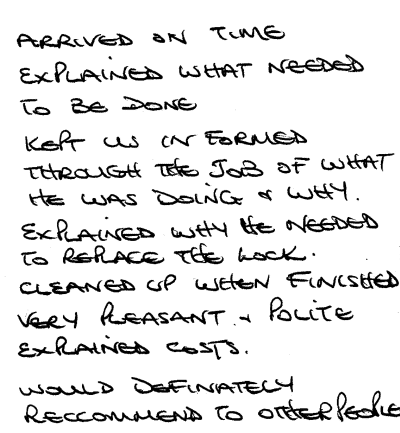 ARRIVED ON TIME
EXPLAINED WHAT NEEDED
TO BE DONE
KEPT US INFORMED
THROUGH THE JOB OF WHAT
HE WAS DOING & WHY.
EXPLAINED WHY HE NEEDED
TO REPLACE THE LOCK.
CLEANED UP WHEN FINISHED
VERY PLEASANT & POLITE
EXPLAINED COSTS.
WOULD DEFINATELY
RECCOMMEND TO OTHER PEOPLE